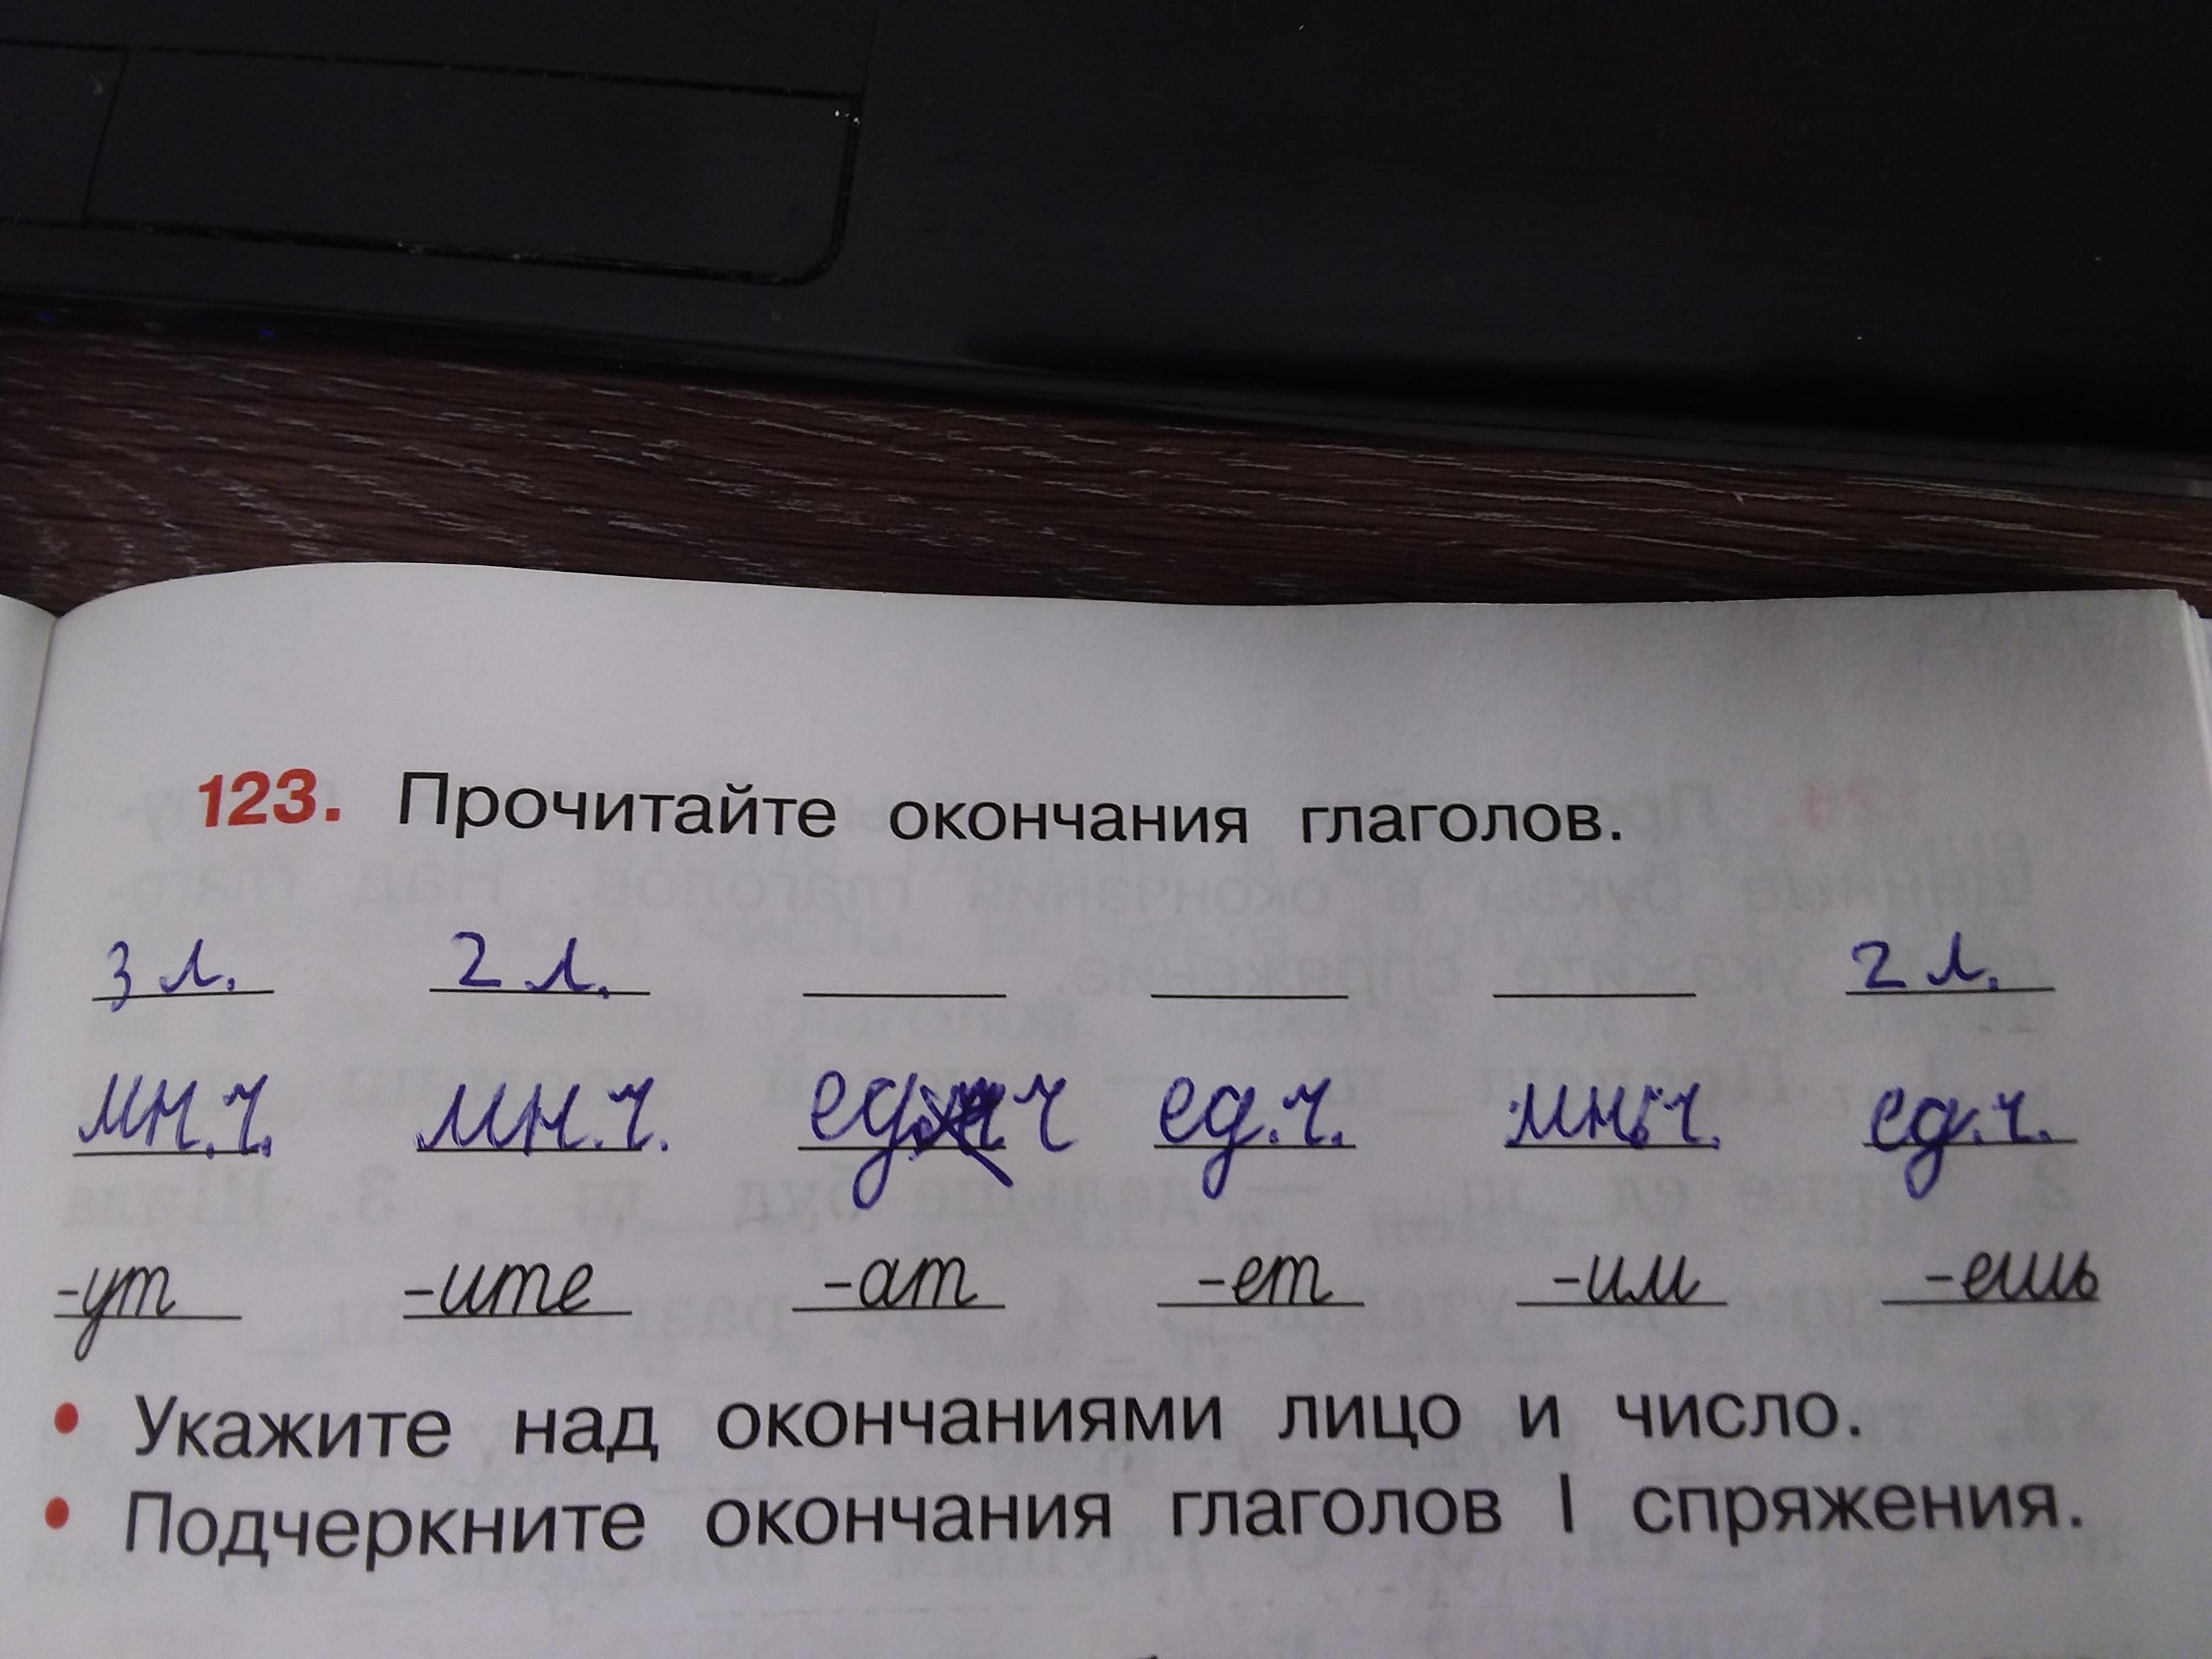 123. Прочитайте окончания глаголов.
3 л. 2 л. 2 л.
мн.ч. мн.ч. ед ч ед.ч. мн.ч. ед.ч.
-ут -ите -ат -ет -им -ешь
• Укажите над окончаниями лицо и число.
• Подчеркните окончания глаголов I спряжения.